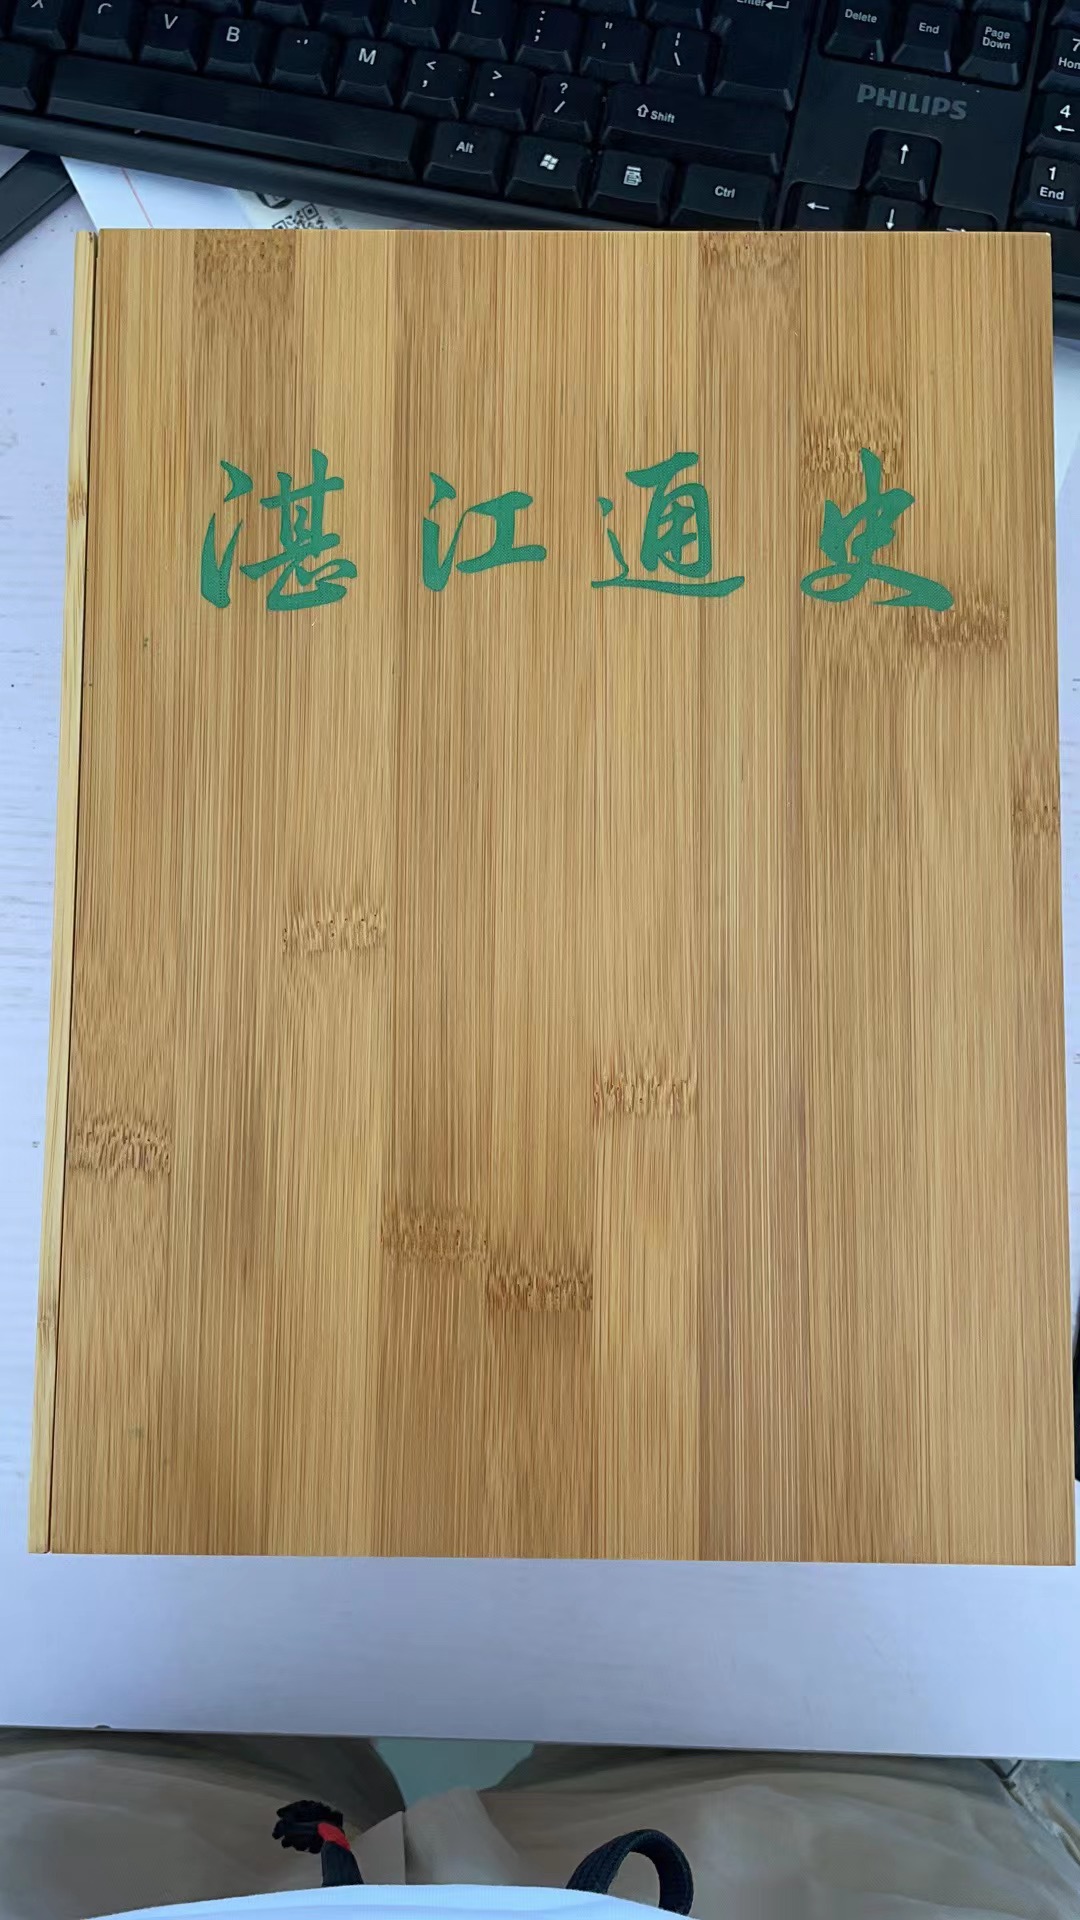 L
Enter
Delete
End
Page Down
7
Hom
V
B
M
<
,
>
.
?
/
:
;
"
'
|
\
PHILIPS
Shift
4
Alt
Ctrl
1
End
湛江通史